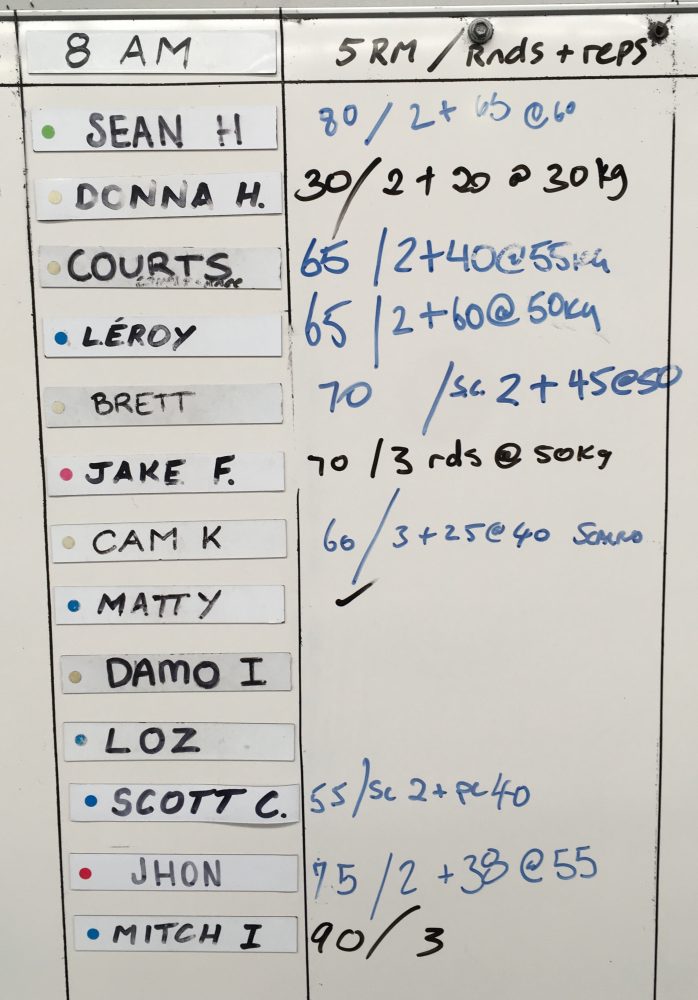 8 AM 5RM / Rnds + reps
SEAN H 80 / 2 + 65 @ 60
DONNA H. 30 / 2 + 20 @ 30kg
COURTS 65 / 2+40@55kg
LÉROY 65 / 2+60@50kg
BRETT 70 /sc. 2 + 45@50
JAKE F. 70 / 3 rds @ 50kg
CAM K 60 / 3+25@40
MATTY ✓
DAMO I
LOZ
SCOTT C. 55/sc 2+ 40
JHON 75 / 2 +38@55
MITCH I 90 / 3